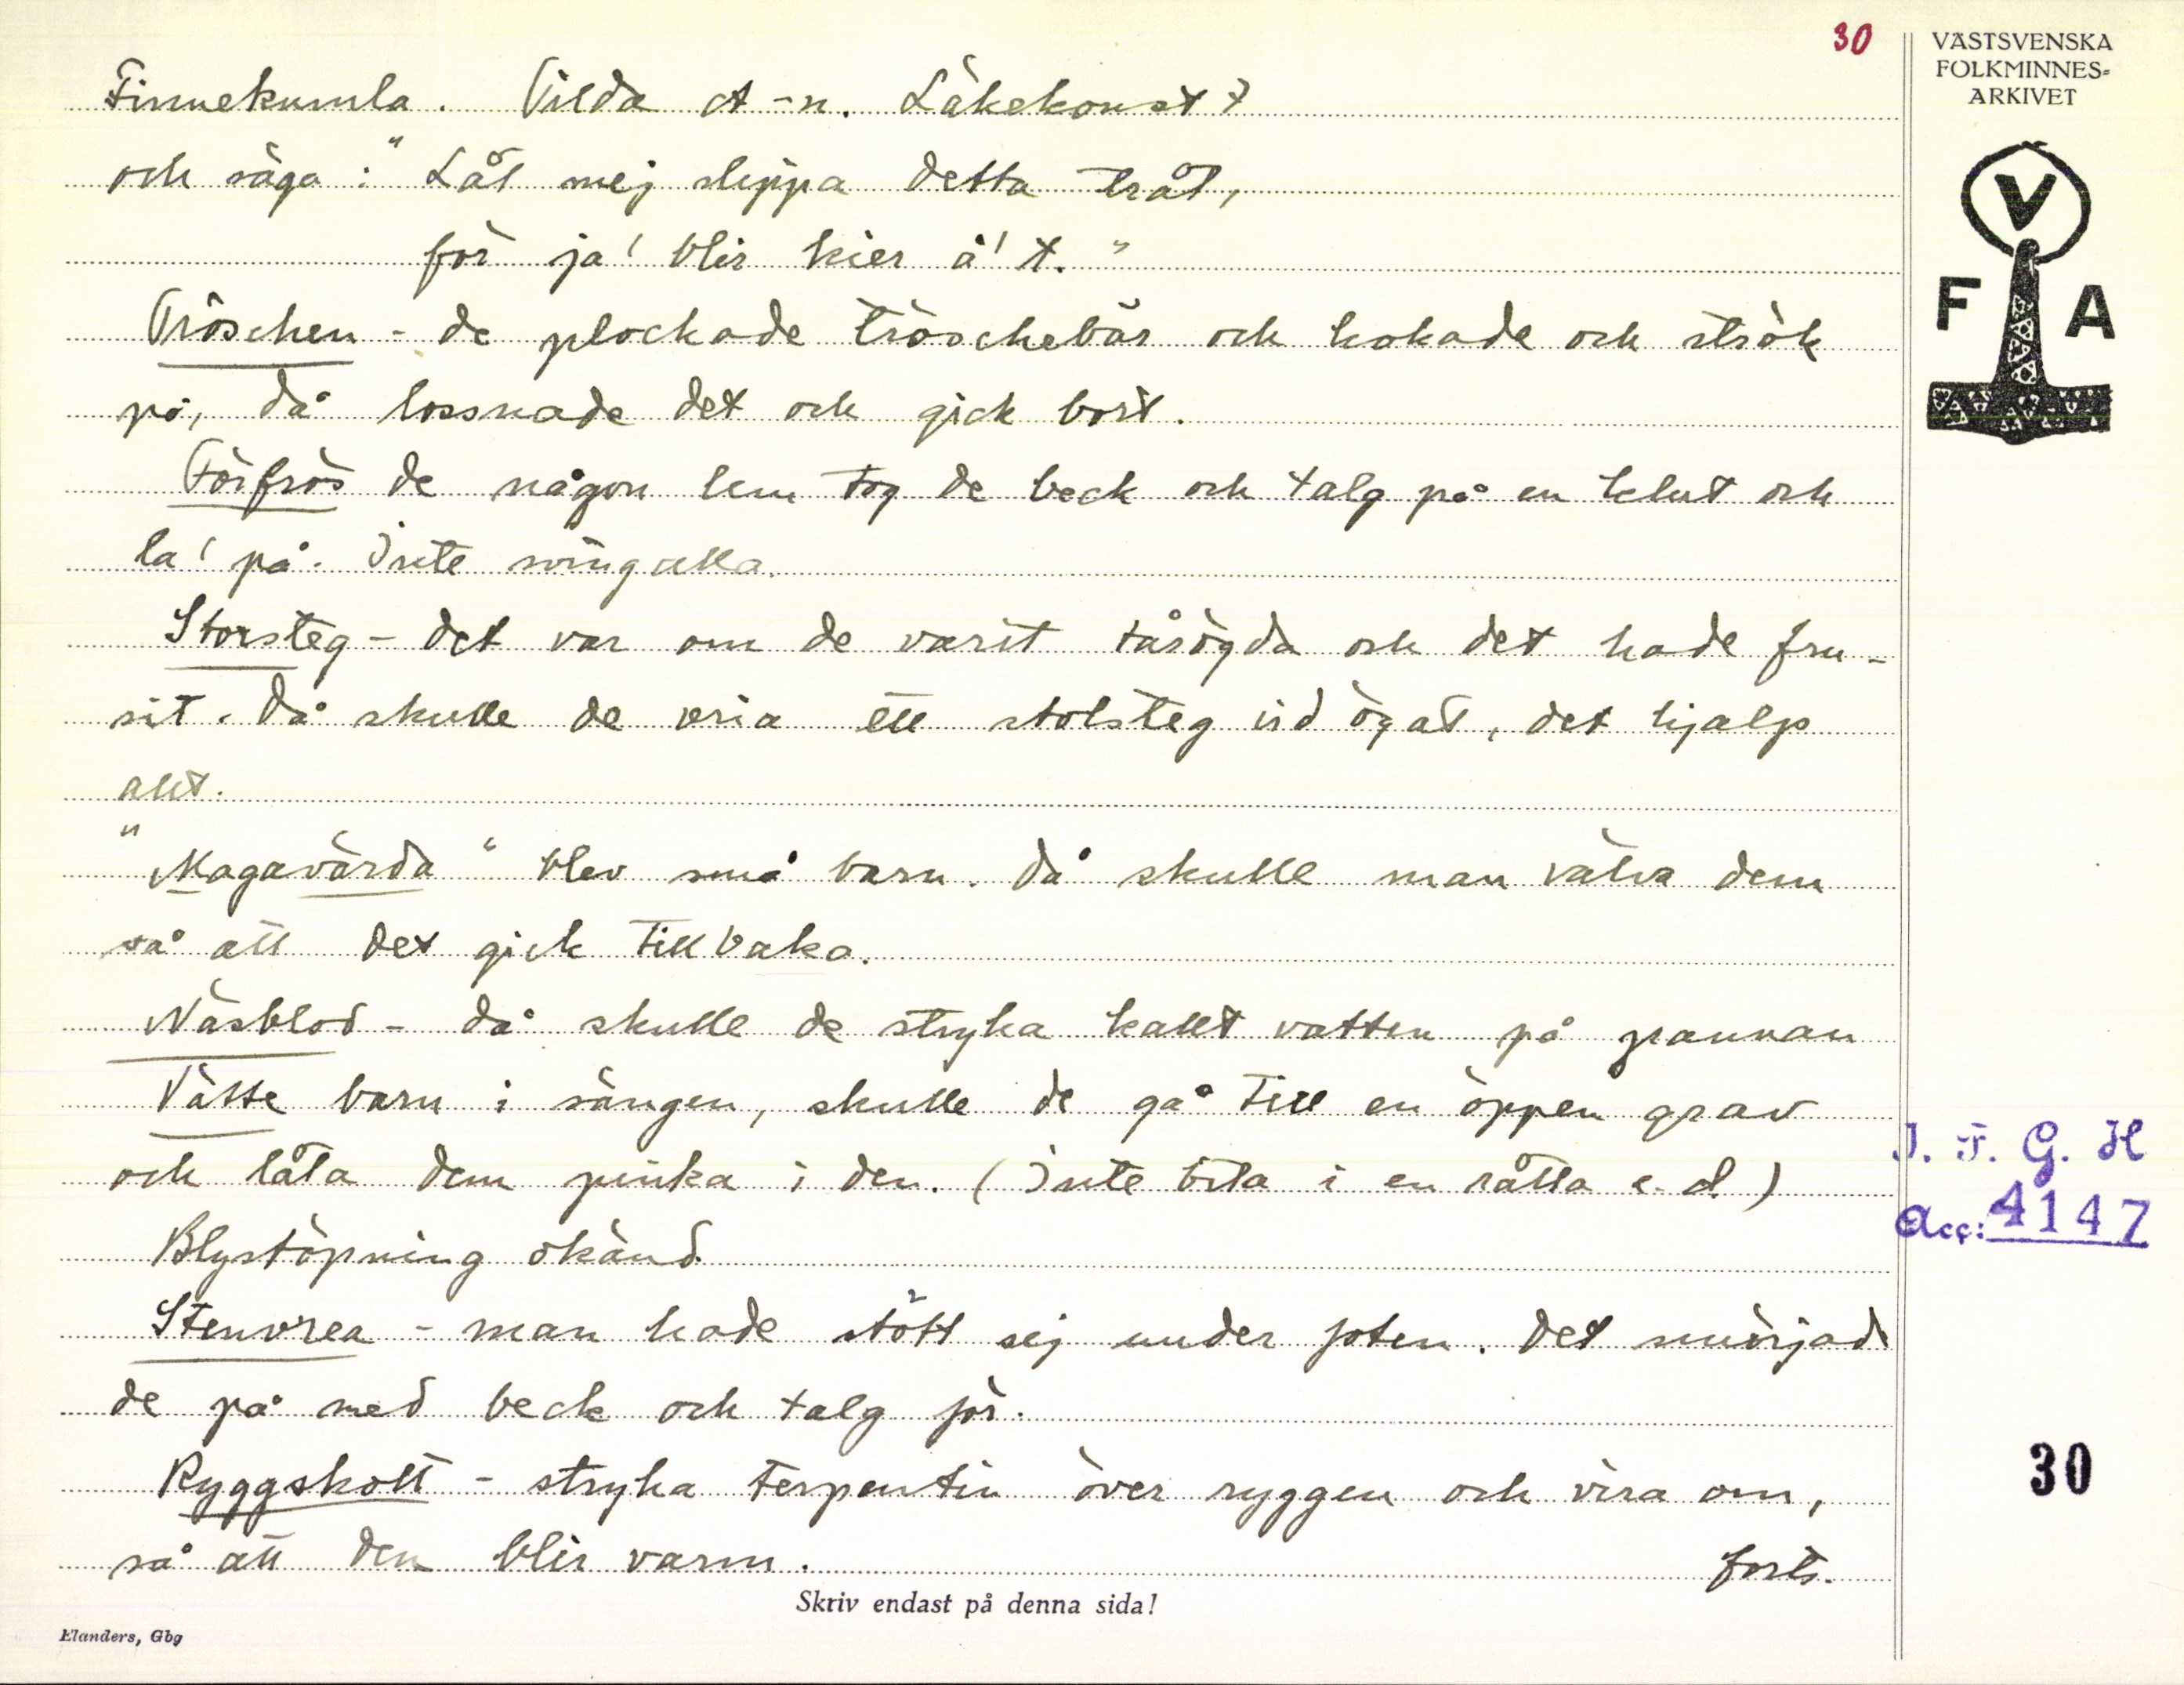 30
VÄSTSVENSKA
FOLKMINNES-
ARKIVET
V
F A
Finnekumla. Vilda A-n. Läkekonst 7
och säga: "Låt mej slippa detta tråt,
för ja' blir kier å' t."
Tröschen - de plockade tröschebär och kokade och strök
på, då lossnade det och gick bort.
Förfrös de någon lem tog de beck och talg på en klut och
la' på. Inte svingalla.
Storsteg - det var om de varit tårögda och det hade fru-
sit. Då skulle de vria ett stolsteg vid ögat, det hjalp
allt.
"Magavärda" blev små barn. Då skulle man välva dem
så att det gick tillbaka.
Näsblod - då skulle de stryka kallt vatten på pannan
Vätte barn i sängen, skulle de gå till en öppen grav
och låta dem pinka i den. (Inte bita i en råtta e.d.)
Blystöpning okänd.
Stenvrea - man hade stött sej under foten. Det smörjad
de på med beck och talg för.
Ryggskott - stryka terpentin över ryggen och vira om,
så att den blir varm. forts.
I. F. G. H
Acc: 4147
30
Skriv endast på denna sida!
Elanders, Gbg